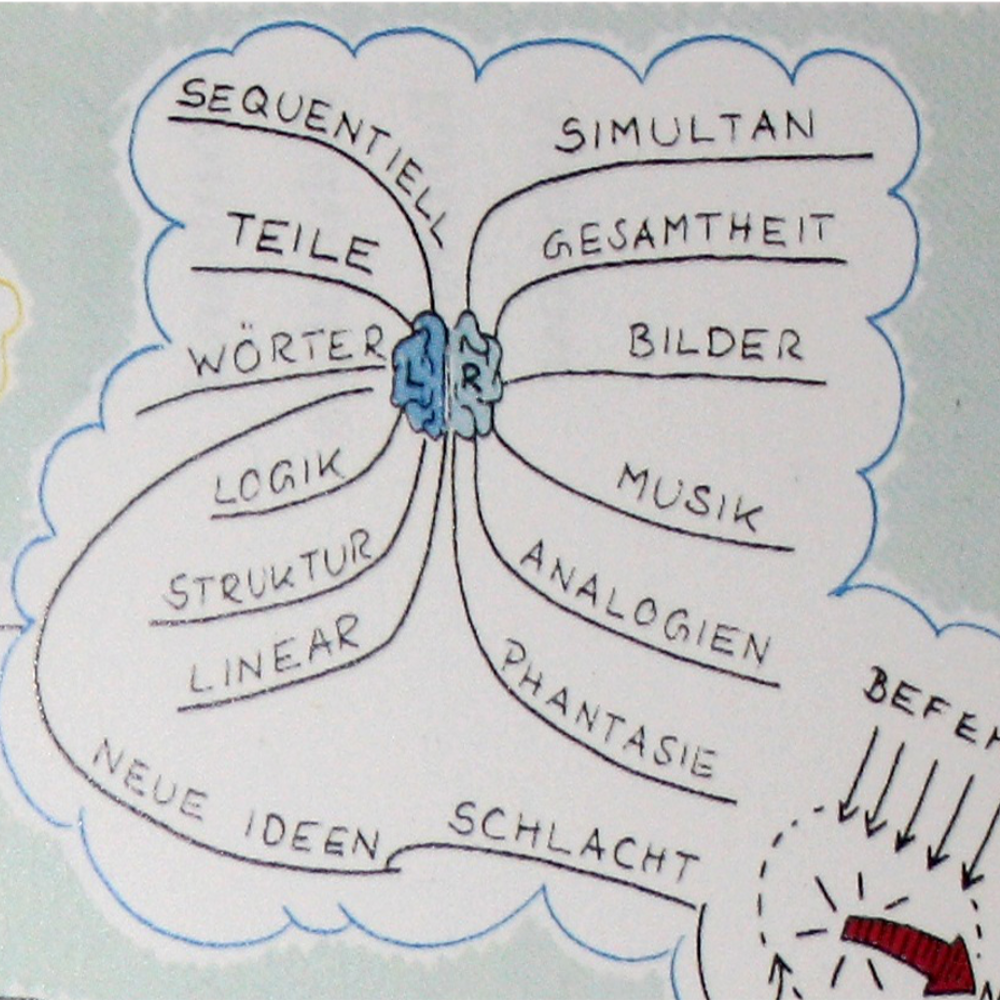 SEQUENTIELL
TEILE
WÖRTER
LOGIK
STRUKTUR
LINEAR
NEUE IDEEN
SCHLACHT
L
R
SIMULTAN
GESAMTHEIT
BILDER
MUSIK
ANALOGIEN
PHANTASIE